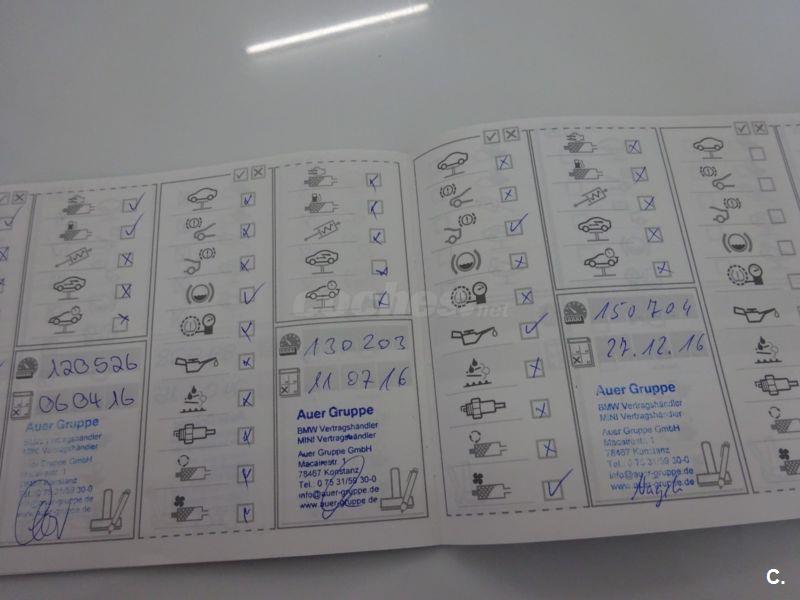 120526
060416
Auer Gruppe
BMW Vertragshändler
MINI Vertragshändler
Auer Gruppe GmbH
Macairestr. 1
78467 Konstanz
Tel. 0 75 31/59 30-0
info@auer-gruppe.de
www.auer-gruppe.de
130203
110716
Auer Gruppe
BMW Vertragshändler
MINI Vertragshändler
Auer Gruppe GmbH
Macairestr. 1
78467 Konstanz
Tel. 0 75 31/59 30-0
info@auer-gruppe.de
www.auer-gruppe.de
150704
27.12.16
Auer Gruppe
BMW Vertragshändler
MINI Vertragshändler
Auer Gruppe GmbH
Macairestr. 1
78467 Konstanz
Tel. 0 75 31/59 30-0
info@auer-gruppe.de
www.auer-gruppe.de
coches.net
C.